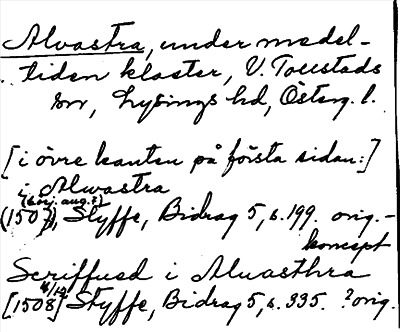 Alvastra, under medel-
tiden kloster, V. Tollstads
sn, Lysings hd, Österg. l.
[i övre kanten på första sidan:]
i Alwastra
(börj. aug.?)
(1507), Styffe, Bidrag 5, s. 199. orig.-
koncept
Scriffued i Aluasthra
4/12
[1508] Styffe, Bidrag 5, s. 335. ?orig.